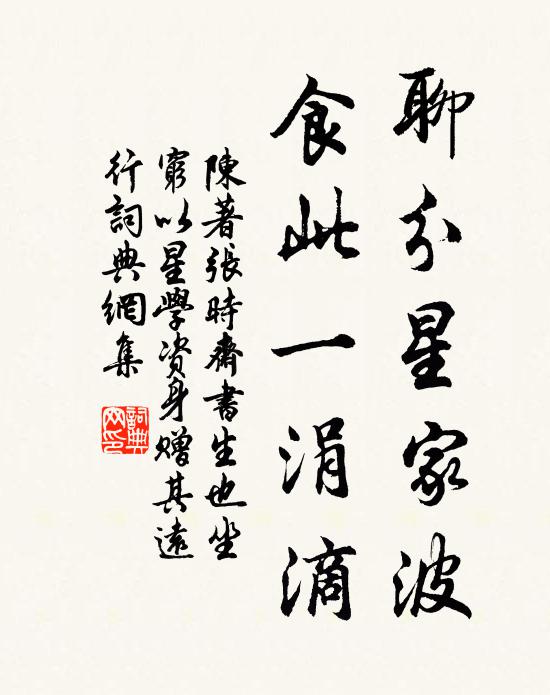 聊分星家波
食此一涓滴
陳著張時齋書生也坐
窮以星學資身贈其遠
行詞典網集
詞典
网印